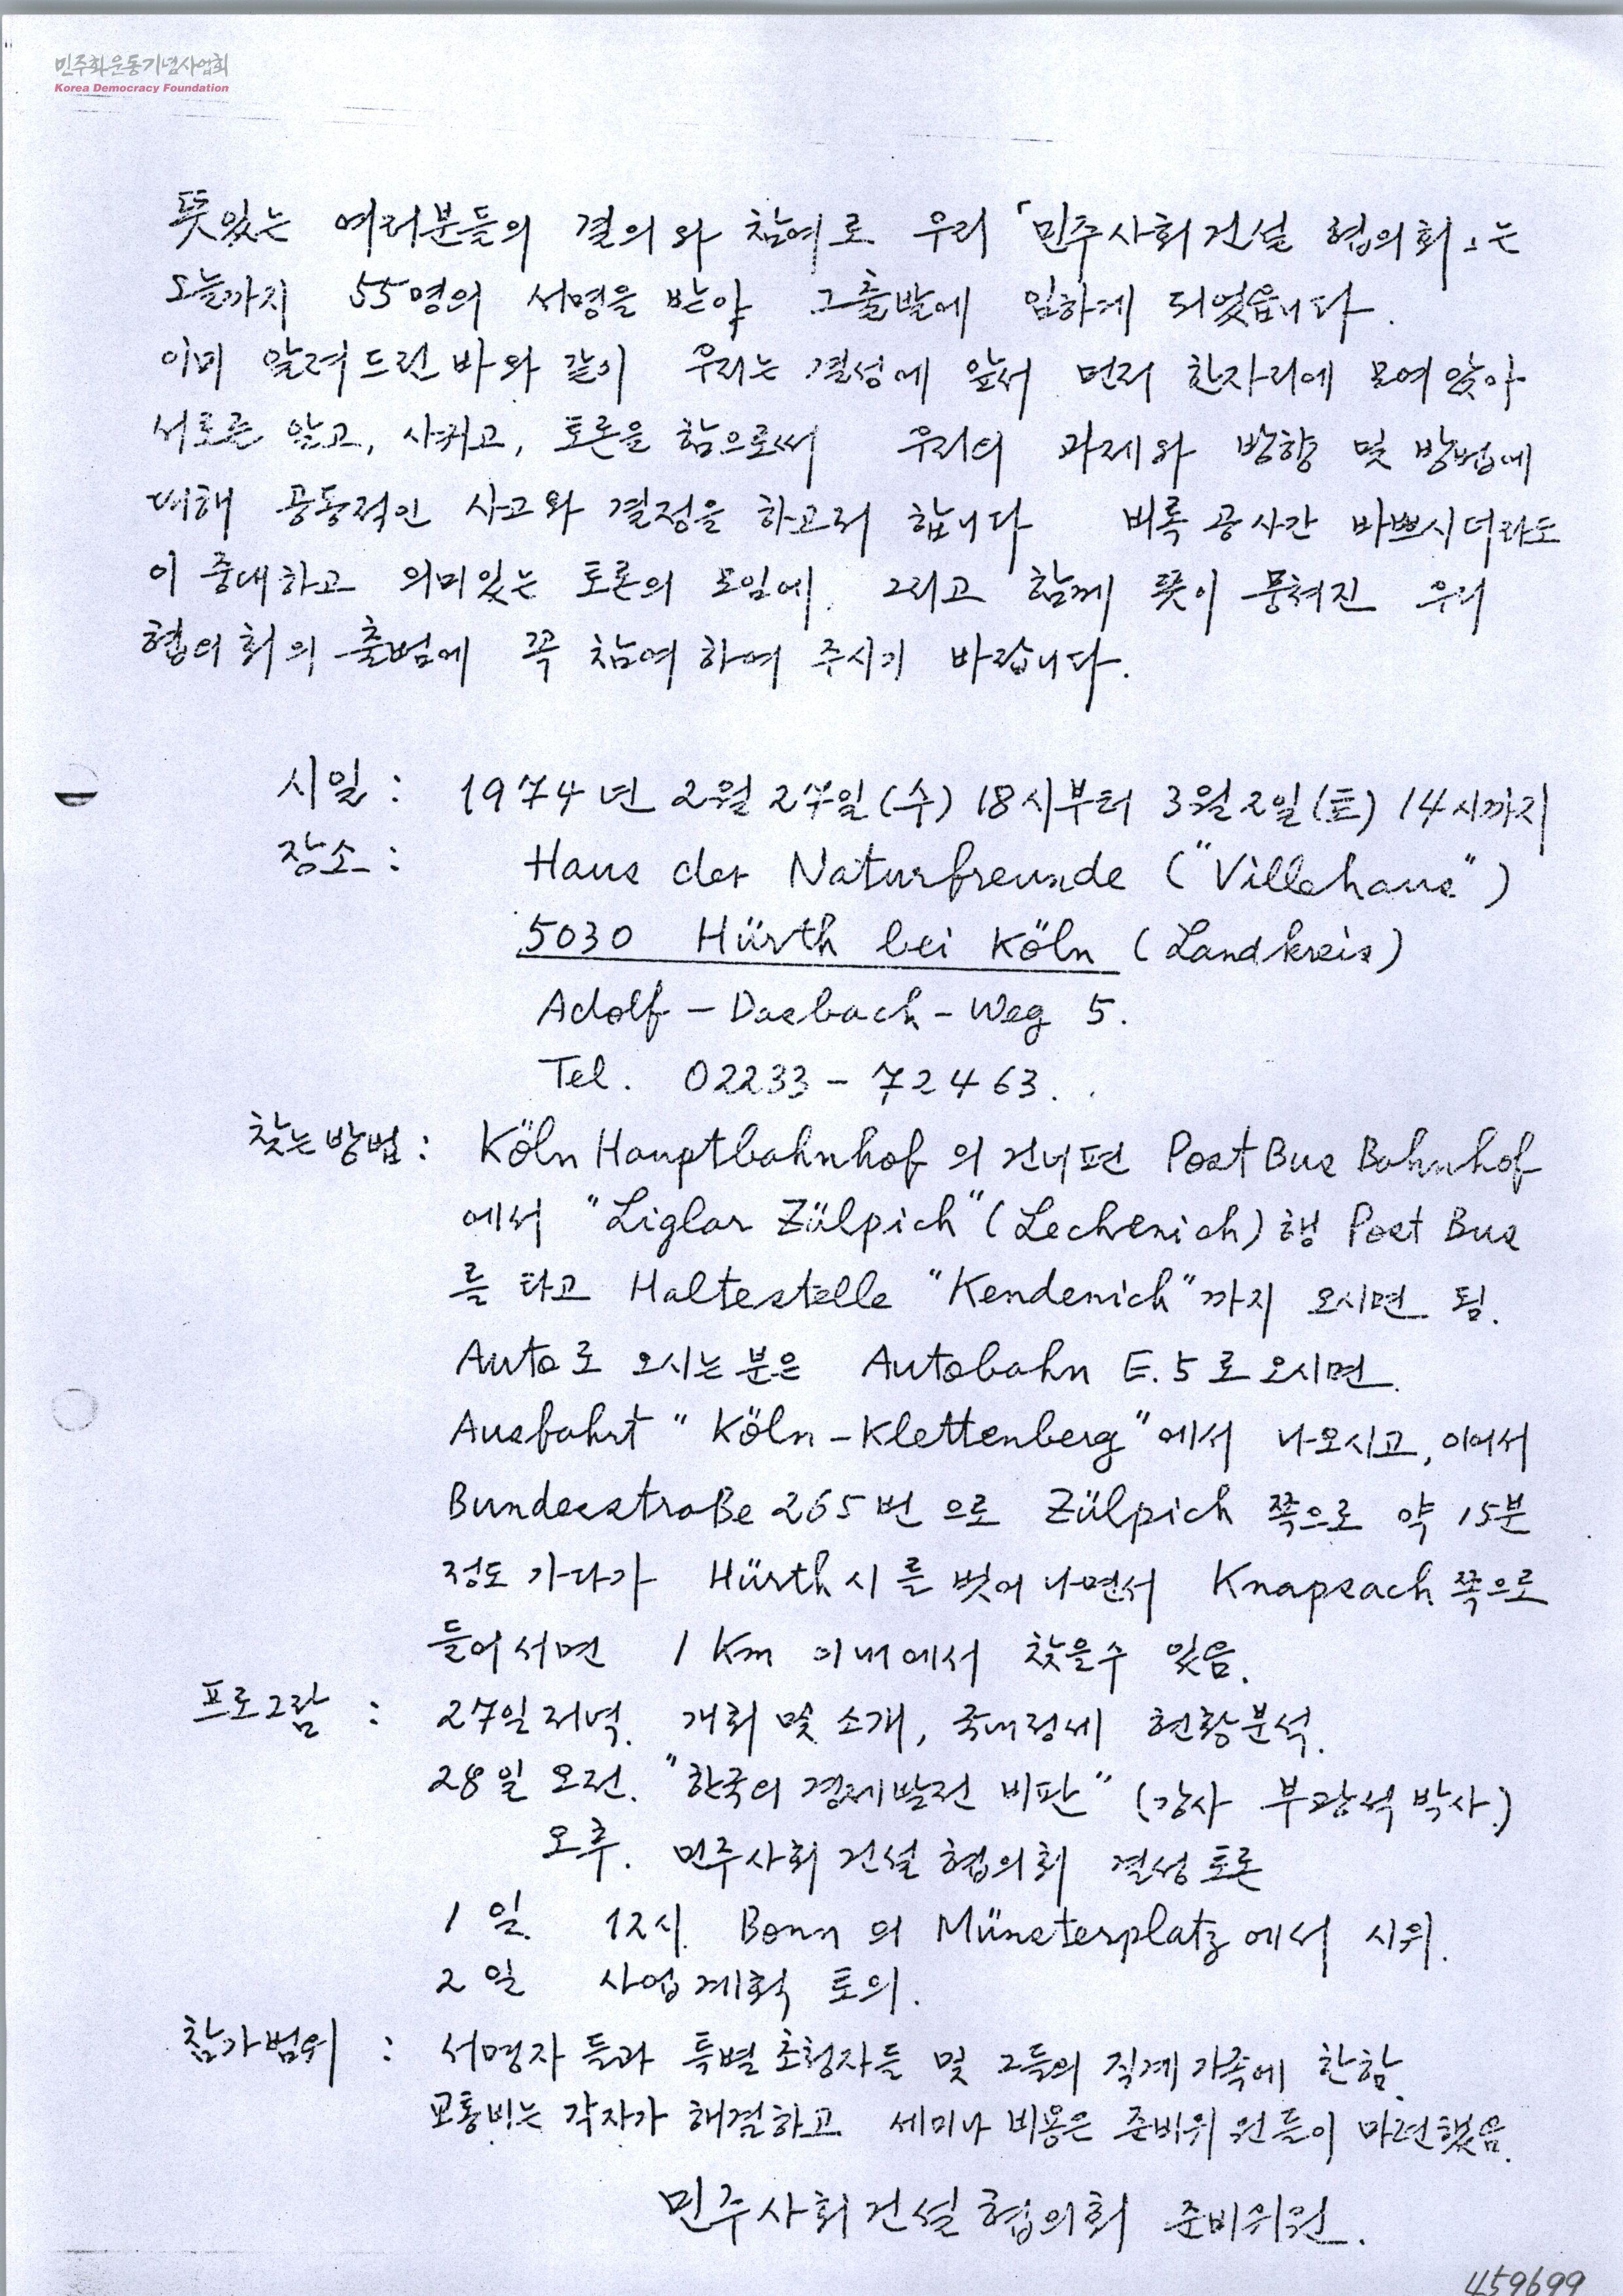 민주화운동기념사업회
Korea Democracy Foundation
뜻있는 여러분들의 결의와 참여로 우리 「민주사회건설 협의회」는
오늘까지 55명의 서명을 받아 그출발에 임하게 되었읍니다.
이미 알려드린 바와 같이 우리는 결성에 앞서 먼저 한자리에 모여앉아
서로를 알고, 사귀고, 토론을 함으로써 우리의 과제와 방향 및 방법에
대해 공동적인 사고와 결정을 하고저 합니다 비록 공사간 바쁘시더라도
이 중대하고 의미있는 토론의 모임에, 그리고 함께 뜻이 뭉쳐진 우리
협의회의 출범에 꼭 참여하여 주시기 바랍니다.
시일: 1974년 2월 27일(수) 18시부터 3월2일(토) 14시까지
장소: Haus der Naturfreunde ("Villehaus")
5030 Hürth bei Köln (Landkreis)
Adolf-Dasbach-Weg 5.
Tel. 02233-72463.
찾는방법: Köln Hauptbahnhof의 건너편 Post Bus Bahnhof
에서 "Liglar Zülpich" (Lechenich)행 Post Bus
를 타고 Haltestelle "Kendenich"까지 오시면 됨.
Auto로 오시는분은 Autobahn E.5로오시면
Ausfahrt "Köln-Klettenberg"에서 나오시고, 이어서
Bundesstraße 265번으로 Zülpich 쪽으로 약 15분
정도 가다가 Hürth시를 벗어나면서 Knapsach 쪽으로
들어서면 1 Km 이내에서 찾을수 있음.
프로그람: 27일저녁. 개회 및 소개, 국내정세 현황분석.
28일 오전. "한국의 경제발전 비판" (강사 부광석 박사.)
오후. 민주사회건설협의회 결성토론
1일. 12시. Bonn의 Münsterplatz에서 시위.
2일 사업계획 토의.
참가범위: 서명자들과 특별초청자들 및 그들의 직계가족에 한함.
교통비는 각자가 해결하고 세미나 비용은 준비위원들이 마련했음.
민주사회건설협의회 준비위원.
459699